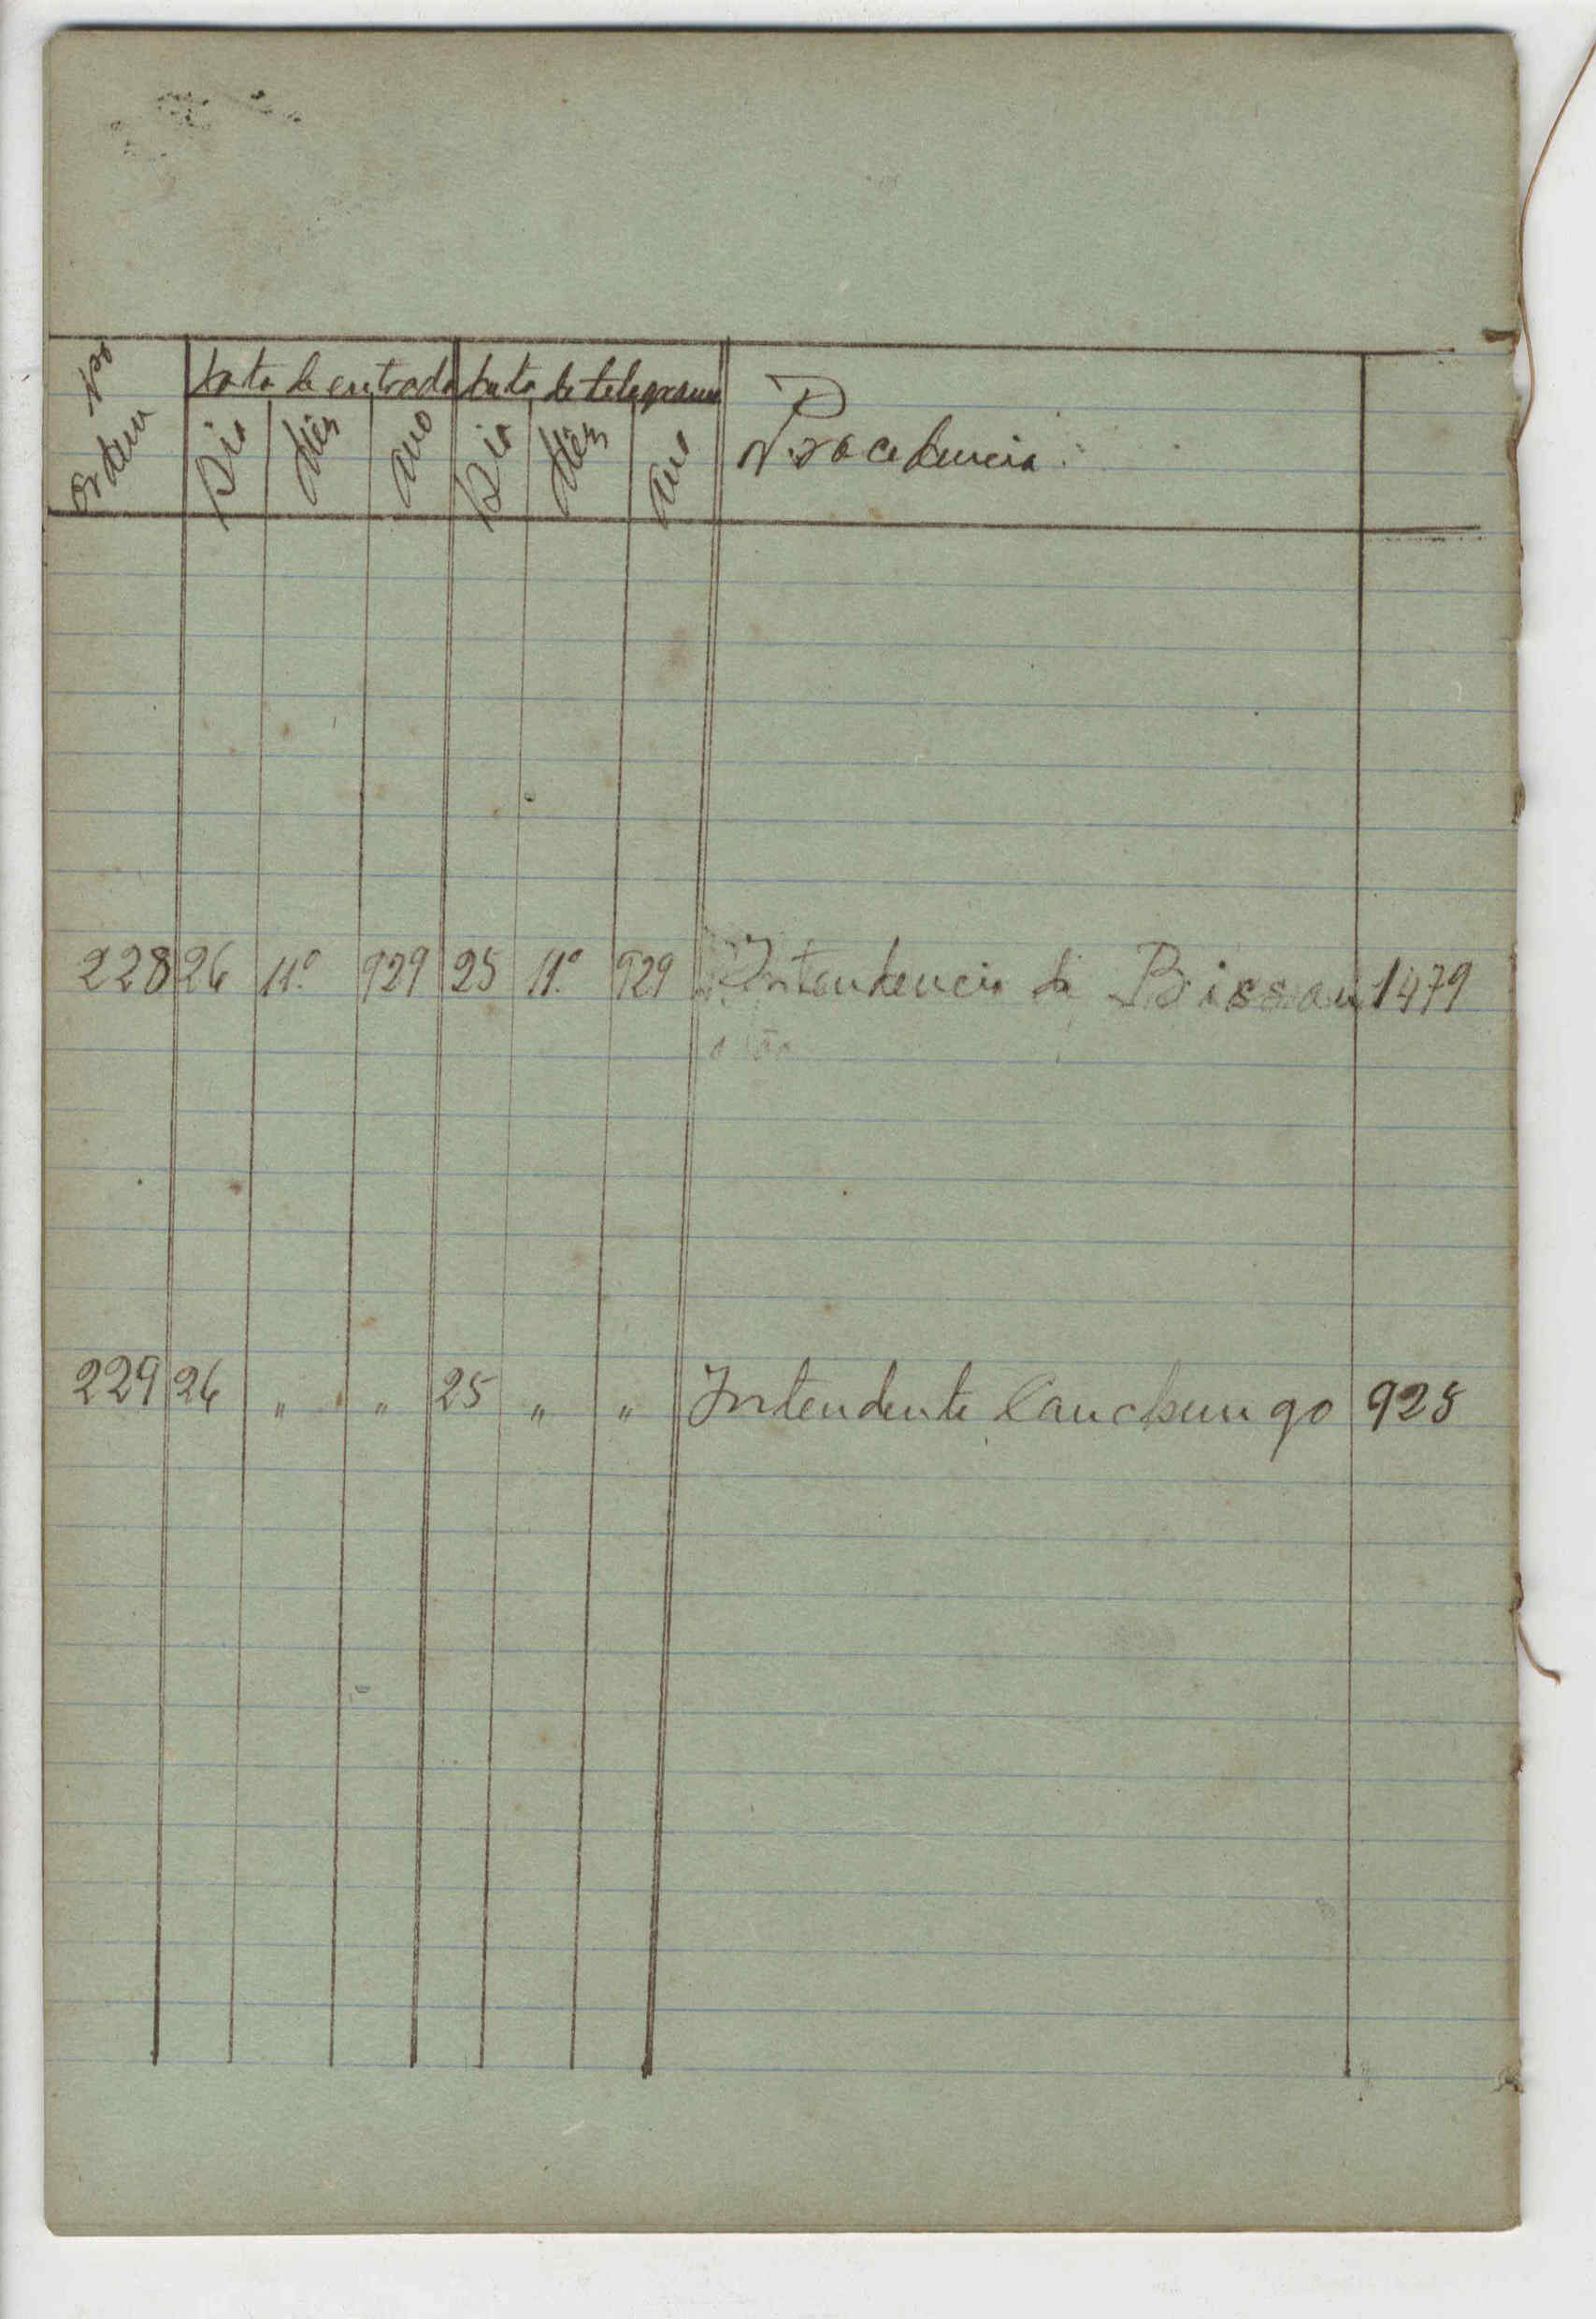 Nº Ordem Data de entrada Data de telegrama Procedencia
Dia Mês Ano Dia Mês Ano
228 26 11º 929 25 11º 929 Intendencia de Bissau 1479
229 26 " " 25 " " Intendente Canchungo 928